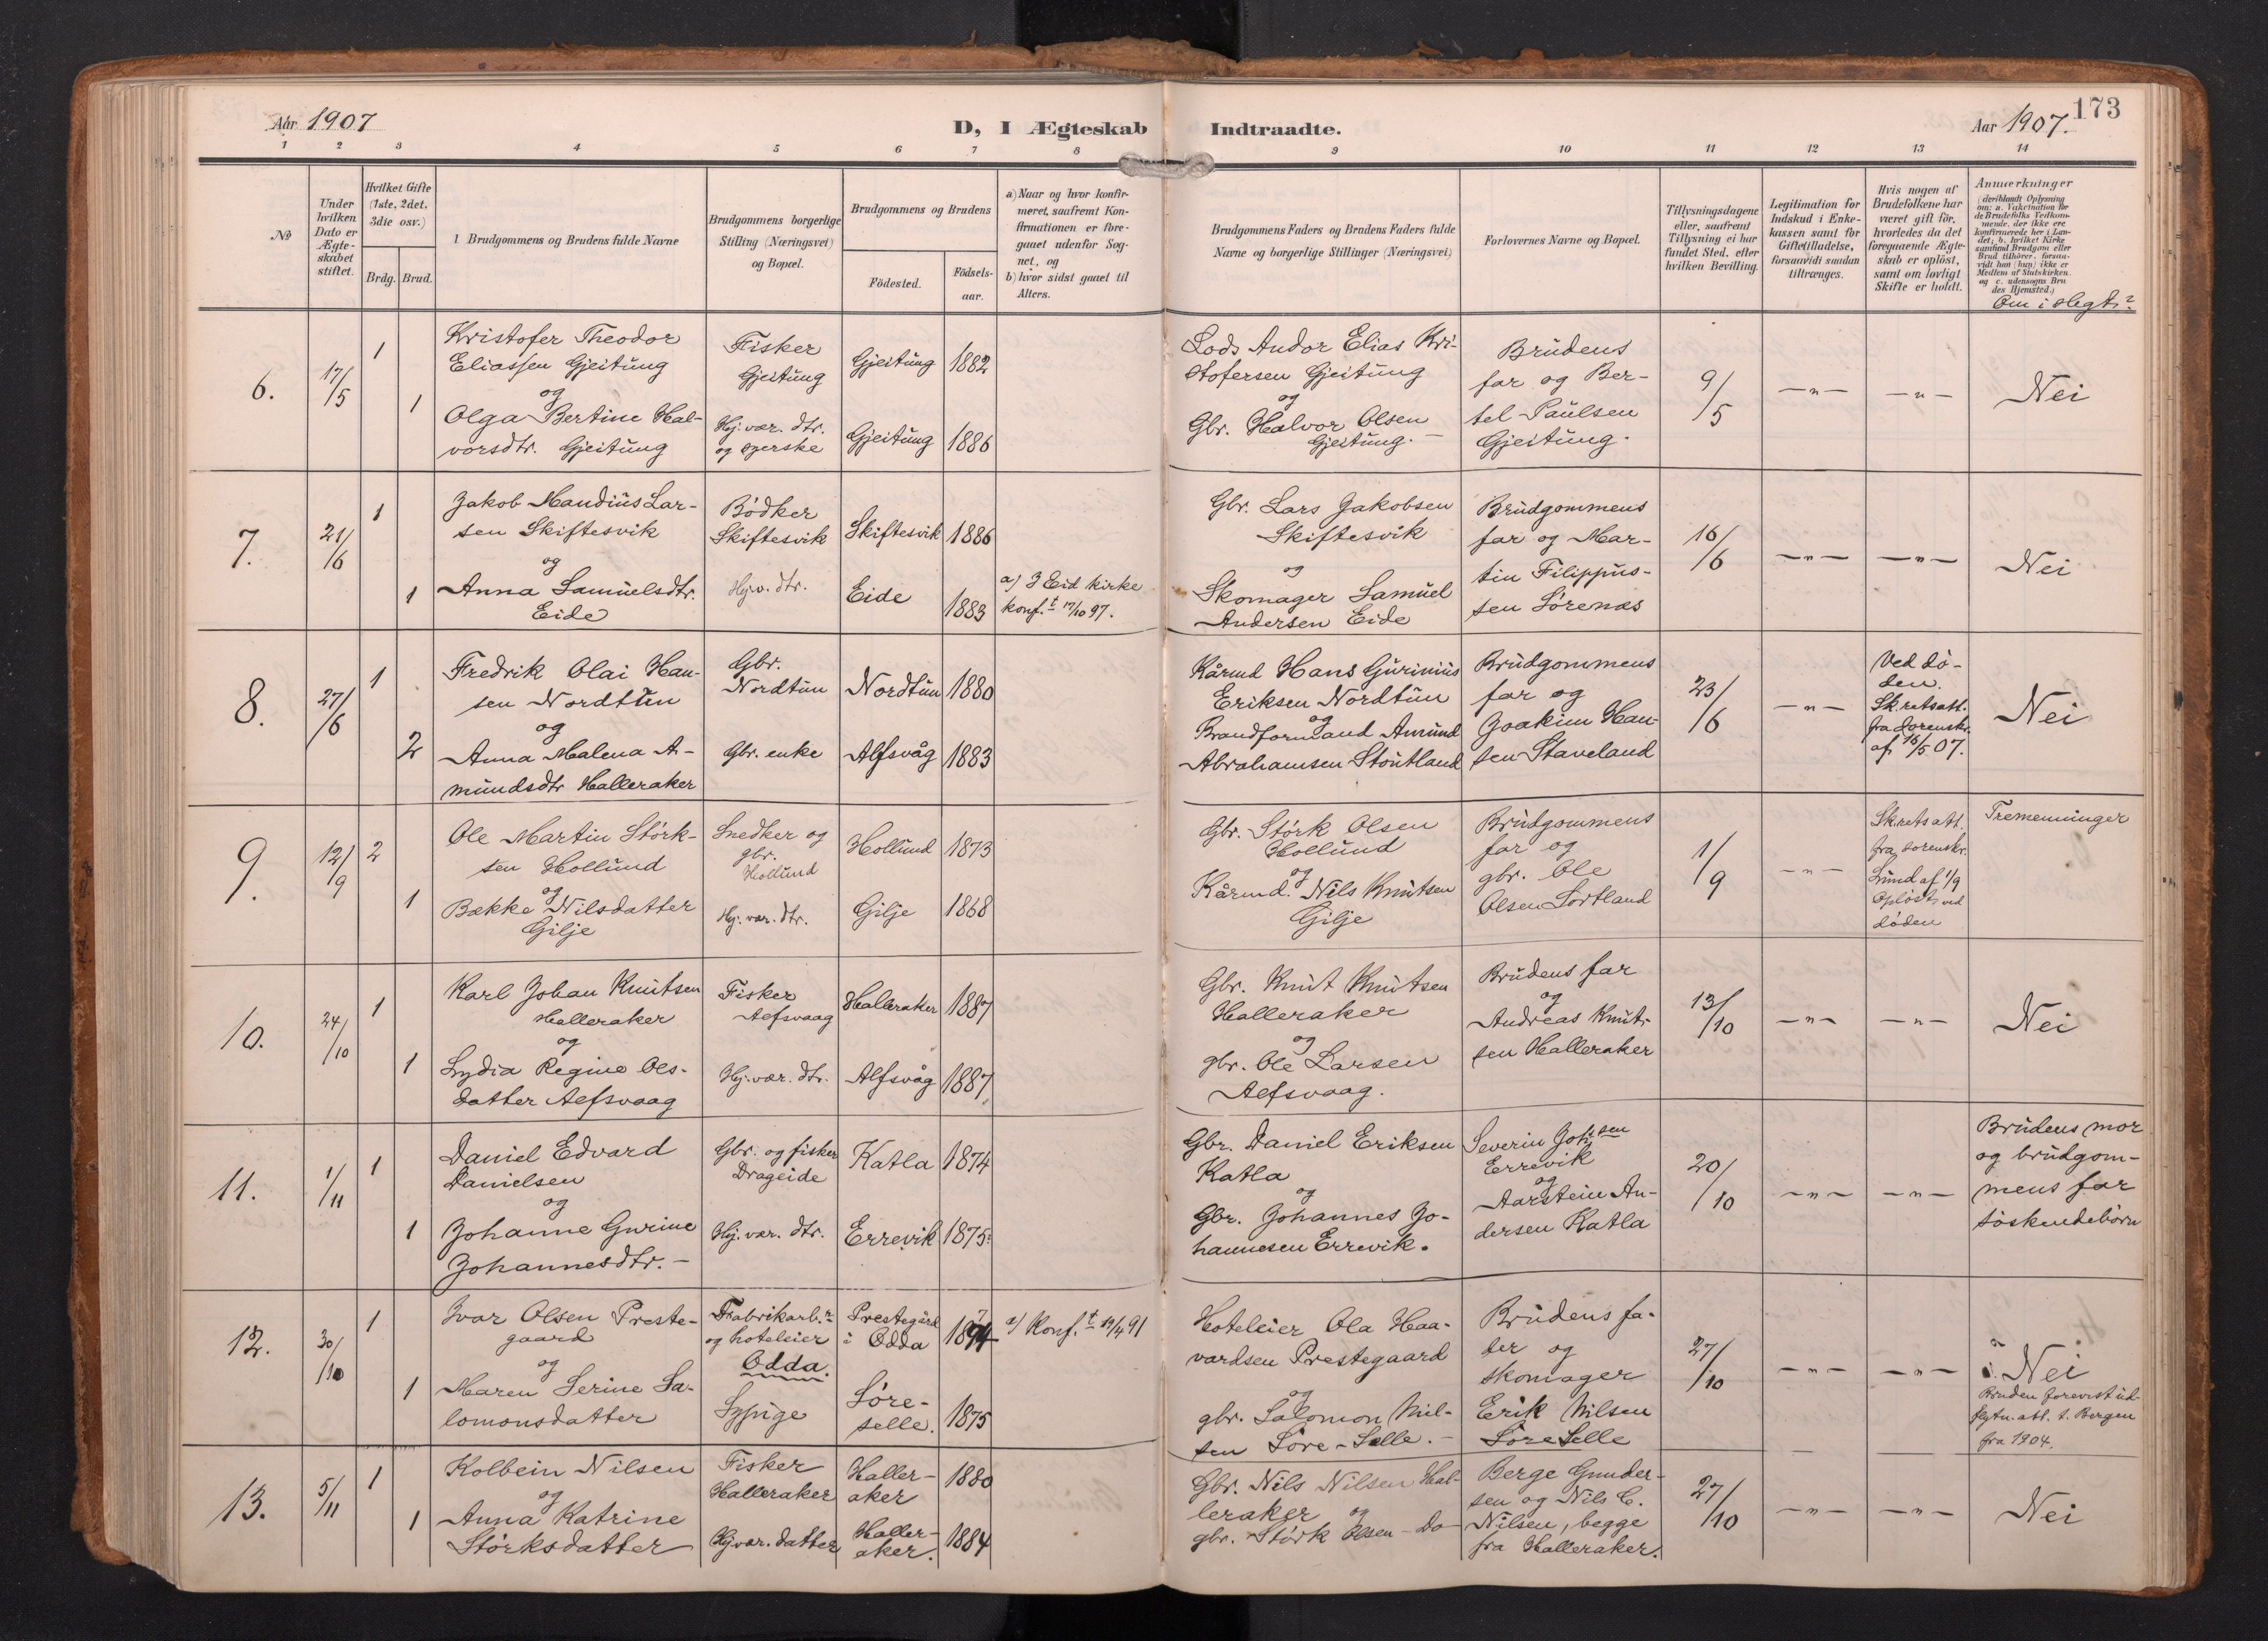 Aar 1907
D, I Ægteskab Indtraadte.
Aar 1907.
173
1 2 3 4 5 6 7 8 9 10 11 12 13 14
No
Under hvilken Dato er Ægteskabet stiftet.
Hvilket Gifte (1ste, 2det, 3die osv.)
Brdg. Brud.
Brudgommens og Brudens fulde Navne
Brudgommens borgerlige Stilling (Næringsvei) og Bopæl.
Brudgommens og Brudens
Födested.
Födsels-aar.
a) Naar og hvor konfir-
meret, saafremt Kon-
firmationen er fore-
gaaet udenfor Sog-
net, og
b) hvor sidst gaaet til
Alters.
Brudgommens Faders og Brudens Faders fulde
Navne og borgerlige Stillinger (Næringsvei)
Forlovernes Navne og Bopæl.
Tillysningsdagene
eller, saafremt
Tillysning ei har
fundet Sted, efter
hvilken Bevilling.
Legitimation for
Indskud i Enke-
kassen samt for
Giftetilladelse,
forsaavidt saadan
tiltrænges.
Hvis nogen af
Brudefolkene har
været gift för,
hvorledes da det
foregaaende Ægte-
skab er oplöst,
samt om lovligt
Skifte er holdt.
Anmærkninger
(deriblandt Oplysning
om: a. Vakcination for
de Brudefolks Vedkom-
mende, der ikke ere
konfirmerede her i Lan-
det; b. hvilket Kirke
samfund Brudgom eller
Brud tilhörer, forsaa-
vidt han (hun) ikke er
Medlem af Statskirken.
og c. udensogns Bru
des Hjemsted.)
Om i slegt?
6.
17/5
1
1
Kristofer Theodor
Eliassen Gjeitung
og
Olga Bertine Hal-
vorsdtr. Gjeitung
Fisker
Gjeitung
Hj. vær. dtr.
og syerske
Gjeitung 1882
Gjeitung 1886
Lods Andor Elias Kri-
stofersen Gjeitung
og
Gbr. Halvor Olsen
Gjeitung. –
Brudens
far og Ber-
tel Paulsen
Gjeitung.
9/5
—"—
—"—
Nei
7.
21/6
1
1
Jakob Mandius Lar-
sen Skiftesvik
og
Anna Samuelsdtr.
Eide
Bödker
Skiftesvik
Hj.v. dtr.
Skiftesvik 1886
Eide 1883
a) I Eid kirke
konf.t 17/10 97.
Gbr. Lars Jakobsen
Skiftesvik
og
Skomager Samuel
Andersen Eide
Brudgommens
far og Mar-
tin Filippus-
sen Sörenæs
16/6
—"—
—"—
Nei
8.
27/6
1
2
Fredrik Olai Han-
sen Nordtun
og
Anna Malena A-
mundsdtr Halleraker
Gbr.
Nordtun
Gbr. enke
Nordtun 1880
Alfsvåg 1883
Kårmd Hans Gurinius
Eriksen Nordtun
og
Brandformand Amund
Abrahamsen Stoutland
Brudgommens
far og
Joakim Han-
sen Staveland
23/6
—"—
Ved dö-
den.
Sk.retsatt.
fra sorenskr.
af 16/5 07.
Nei
9.
12/9
2
1
Ole Martin Störk-
sen Hollund
og
Bække Nilsdatter
Gilje
Snedker og
gbr.
Hollund
Hj. vær. dtr.
Hollund 1873
Gilje 1868
Gbr. Störk Olsen
Hollund
og
Kårmd. Nils Knutsen
Gilje
Brudgommens
far og
gbr. Ole
Olsen Sortland
1/9
—"—
Sk.retsatt.
fra sorenskr.
Lund af 1/9
Oplöst ved
döden
Tremenninger
10.
24/10
1
1
Karl Johan Knutsen
Halleraker
og
Lydia Regine Ols-
datter Alfsvaag
Fisker
Alfsvaag
Hj. vær. dtr.
Halleraker 1887
Alfsvåg 1887
Gbr. Knut Knutsen
Halleraker
og
gbr. Ole Larsen
Alfsvaag.
Brudens far
og
Andreas Knut-
sen Halleraker
13/10
—"—
—"—
Nei
11.
1/11
1
1
Daniel Edvard
Danielsen
og
Johanne Gurine
Johannesdtr. –
Gbr. og fisker
Drageide
Hj. vær. dtr.
Katla 1874
Errevik 1875
Gbr. Daniel Eriksen
Katla
og
Gbr. Johannes Jo-
hannesen Errevik.
Severin Joh.sen
Errevik
og
Aarstein An-
dersen Katla
20/10
—"—
—"—
Brudens mor
og brudgom-
mens far
söskendebörn
12.
30/10
1
1
Ivar Olsen Preste-
gaard
og
Maren Serine Sa-
lomonsdatter
Fabrikarb.r
og hoteleier
Odda.
Sypige
Prestegård
i Odda
Söre-
selle. 1875
a) Konf.t 19/4 91
Hoteleier Ola Haa-
vardsen Prestegaard
og
gbr. Salomon Niel-
sen Söre-Selle. –
Brudens fa-
der og
skomager
Erik Nilsen
Söre Selle
27/10
—"—
—"—
Nei
Bruden forevist ud-
flytn. att. t. Bergen
fra 1904.
13.
5/11
1
1
Kolbein Nilsen
og
Anna Katrine
Störksdatter
Fisker
Halleraker
Hj vær. datter
Haller-
aker 1880
Haller-
aker. 1884
Gbr. Nils Nilsen Hal-
leraker
og
gbr. Störk Olsen – Do –
Berge Gunder-
sen og Nils C.
Nilsen, begge
fra Halleraker.
27/10
—"—
—"—
Nei